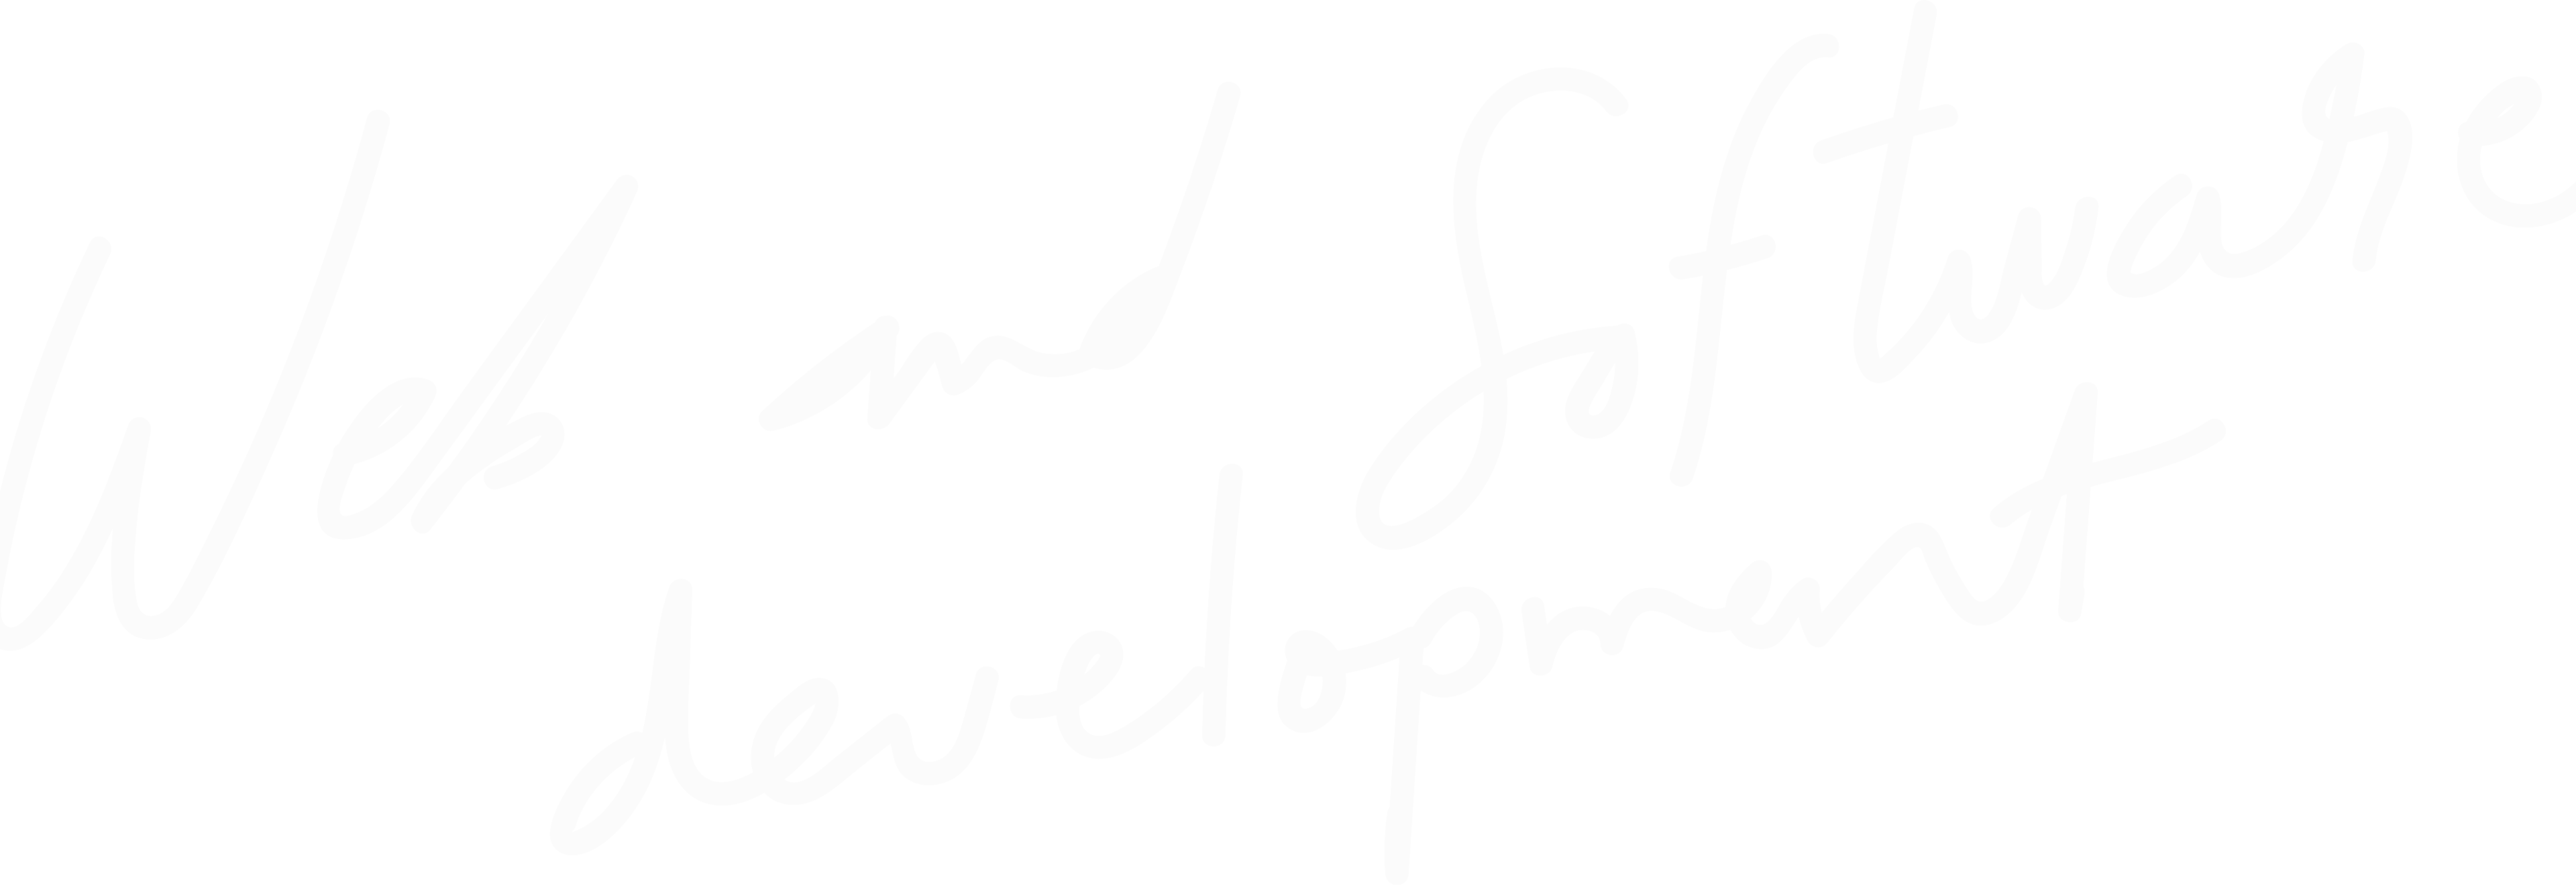 Web and Software
development